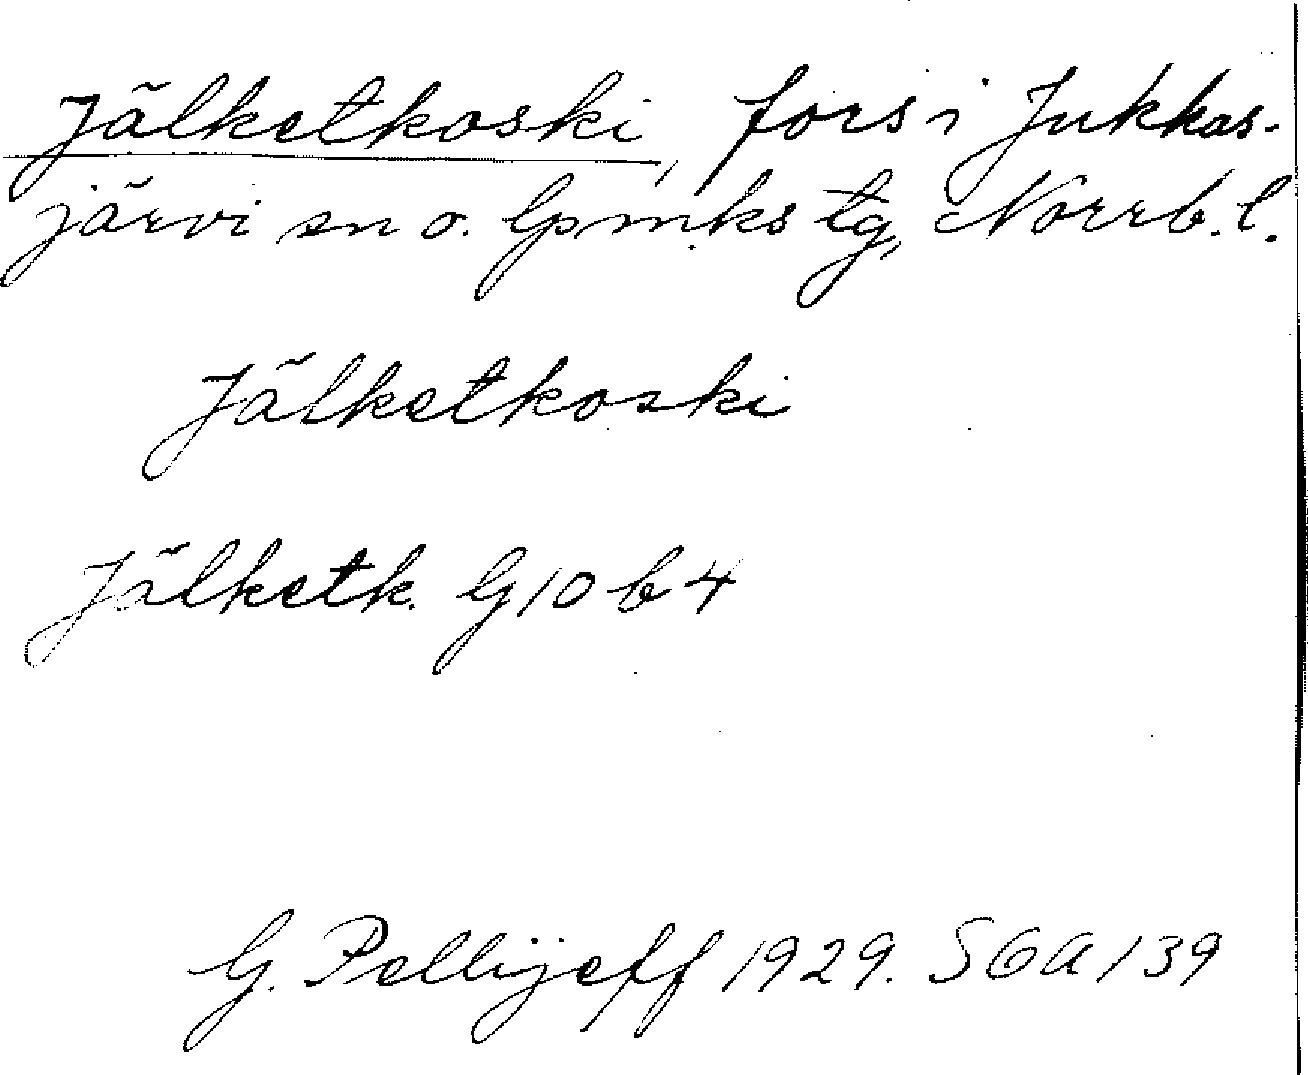 Jälketkoski, fors i Jukkas-
järvi sn o. lpmks tg, Norrb. l.
Jälketkoski
Jälketk. G 10 b 4
G. Pellijeff 1929. SGA 139